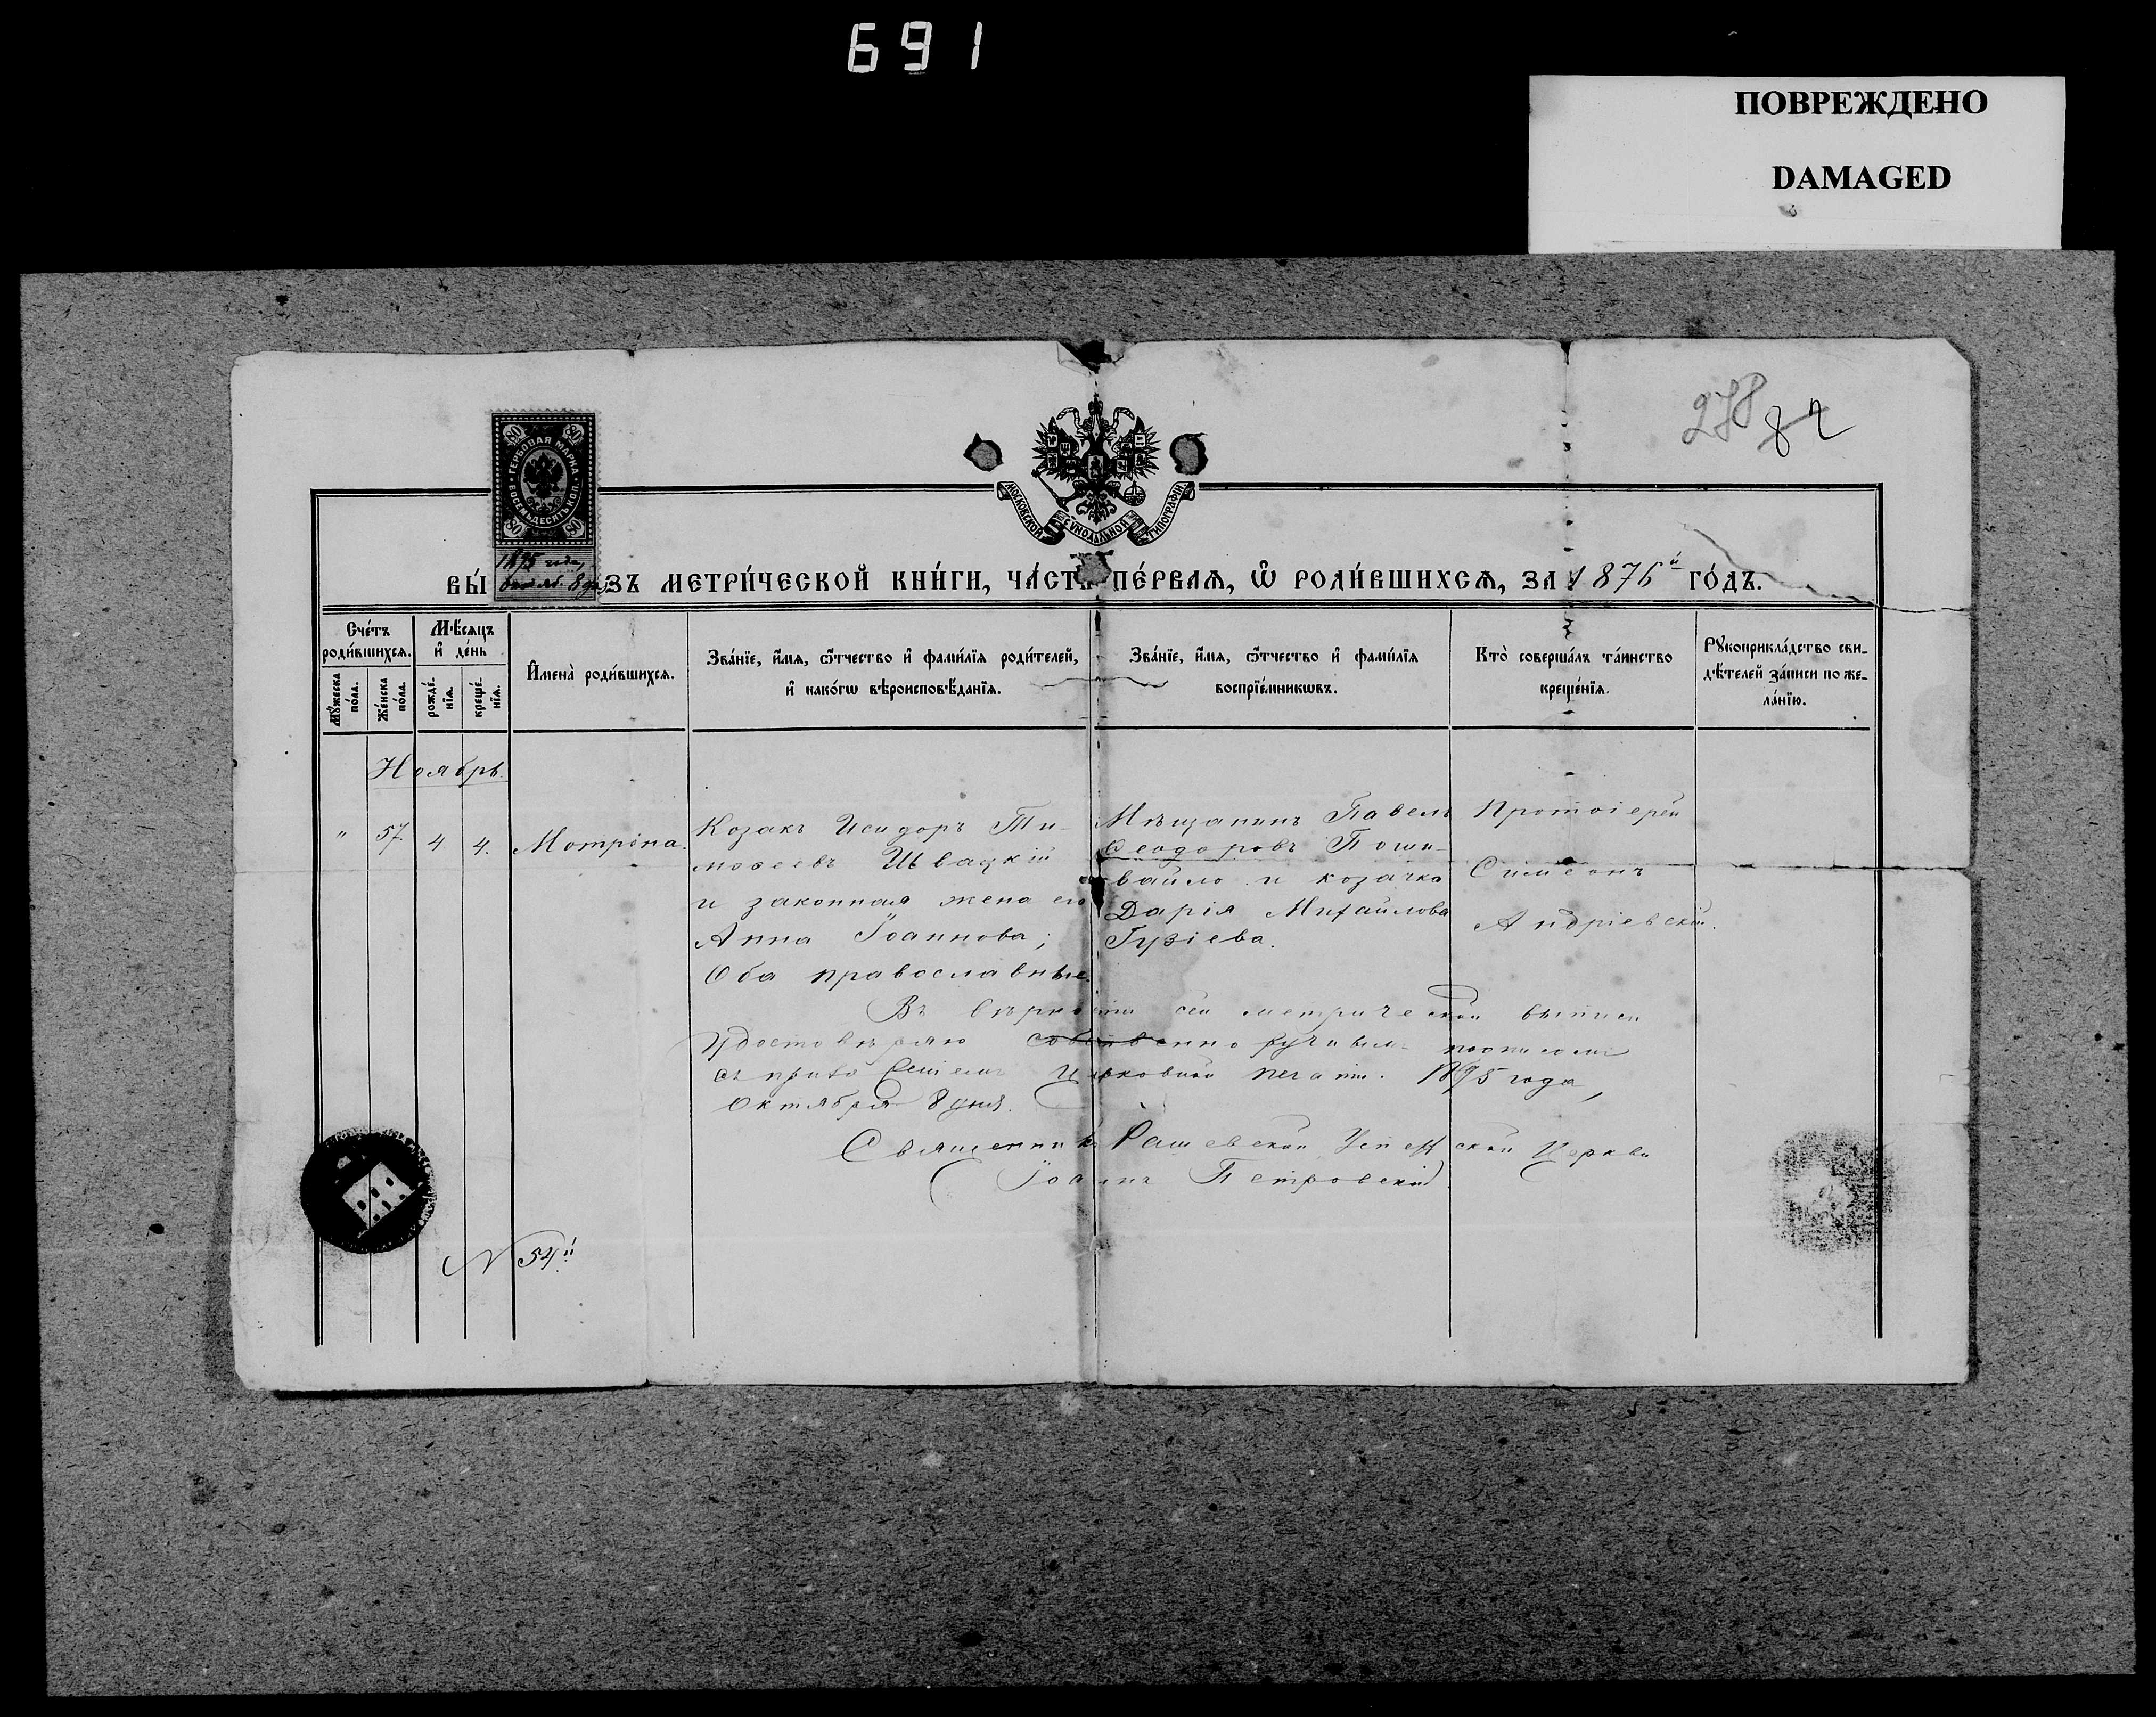 691
ПОВРЕЖДЕНО
DAMAGED
278 82
80 80
ГЕРБОВАЯ МАРКА
ВОСЕМЬДЕСЯТЪ КОП.
80 80
1895 года,
октяб. 8 дня
МОСКОВСКОЙ СѴНОДАЛЬНОЙ ТИПОГРАФІИ
ВЫ́ ЗЪ МЕТРИ́ЧЕСКОЙ КНИ́ГИ, ЧА́СТЬ ПЕ́РВАѦ, Ѡ҆ РОДИ́ВШИХСѦ, ЗА 1876й ГО́ДЪ.
Сче́тъ роди́вшихсѧ.
Мꙋ́жеска по́ла.
Же́нска по́ла.
Мѣ́сѧцъ и҆ де́нь
рожде́нїѧ.
креще́нїѧ.
И҆мена̀ роди́вшихсѧ.
Зва́нїе, и҆́мѧ, ѻ҆́тчество и҆ фами́лїѧ роди́телей,
и҆ како́гѡ вѣроисповѣ́данїѧ.
Зва́нїе, и҆́мѧ, ѻ҆́тчество и҆ фами́лїѧ
воспрїе́мникѡвъ.
Кто̀ соверша́лъ та́инство
креще́нїѧ.
Рꙋкоприкла́дство сви-
дѣ́телей за́писи по же-
ла́нїю.
Ноябрь.
" 57 4 4. Мотрона.
Козакъ Исидоръ Ти-
моѳеевъ Швацкій
и законная жена его
Анна Іоаннова;
Оба православные.
Мѣщанинъ Павелъ
Ѳеодоровъ Поши-
вайло и козачка
Дарія Михайлова
Гузіева.
Протоіерей
Симеонъ
Андріевскій.
Въ вѣрности сей метрической выписи
удостовѣряю собственноручнымъ подписомъ
съ приложеніемъ Церковной печати. 1895 года,
Октября 8 дня.
Священникъ Рашевской Успенской Церкви
(Іоаннъ Петровскій)
N 54й